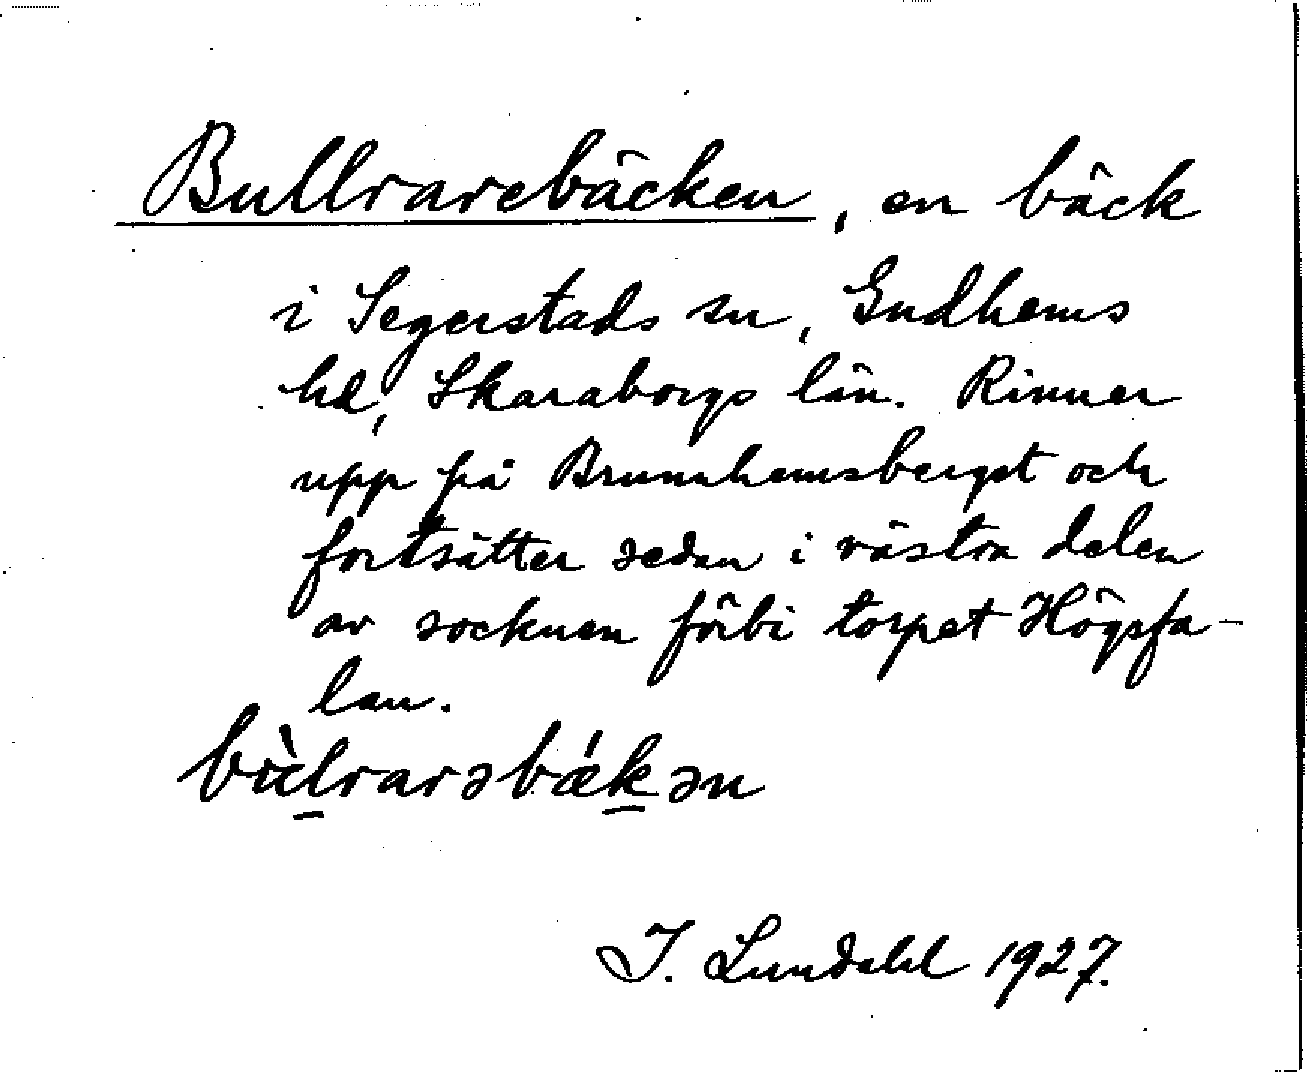 Bullrarebäcken, en bäck
i Segerstads sn, Gudhems
hd, Skaraborgs län. Rinner
upp på Brunnhemsberget och
fortsätter sedan i västra delen
av socknen förbi torpet Högsfa-
lan.
bùlrarəbǽkən
I. Lundahl 1927.